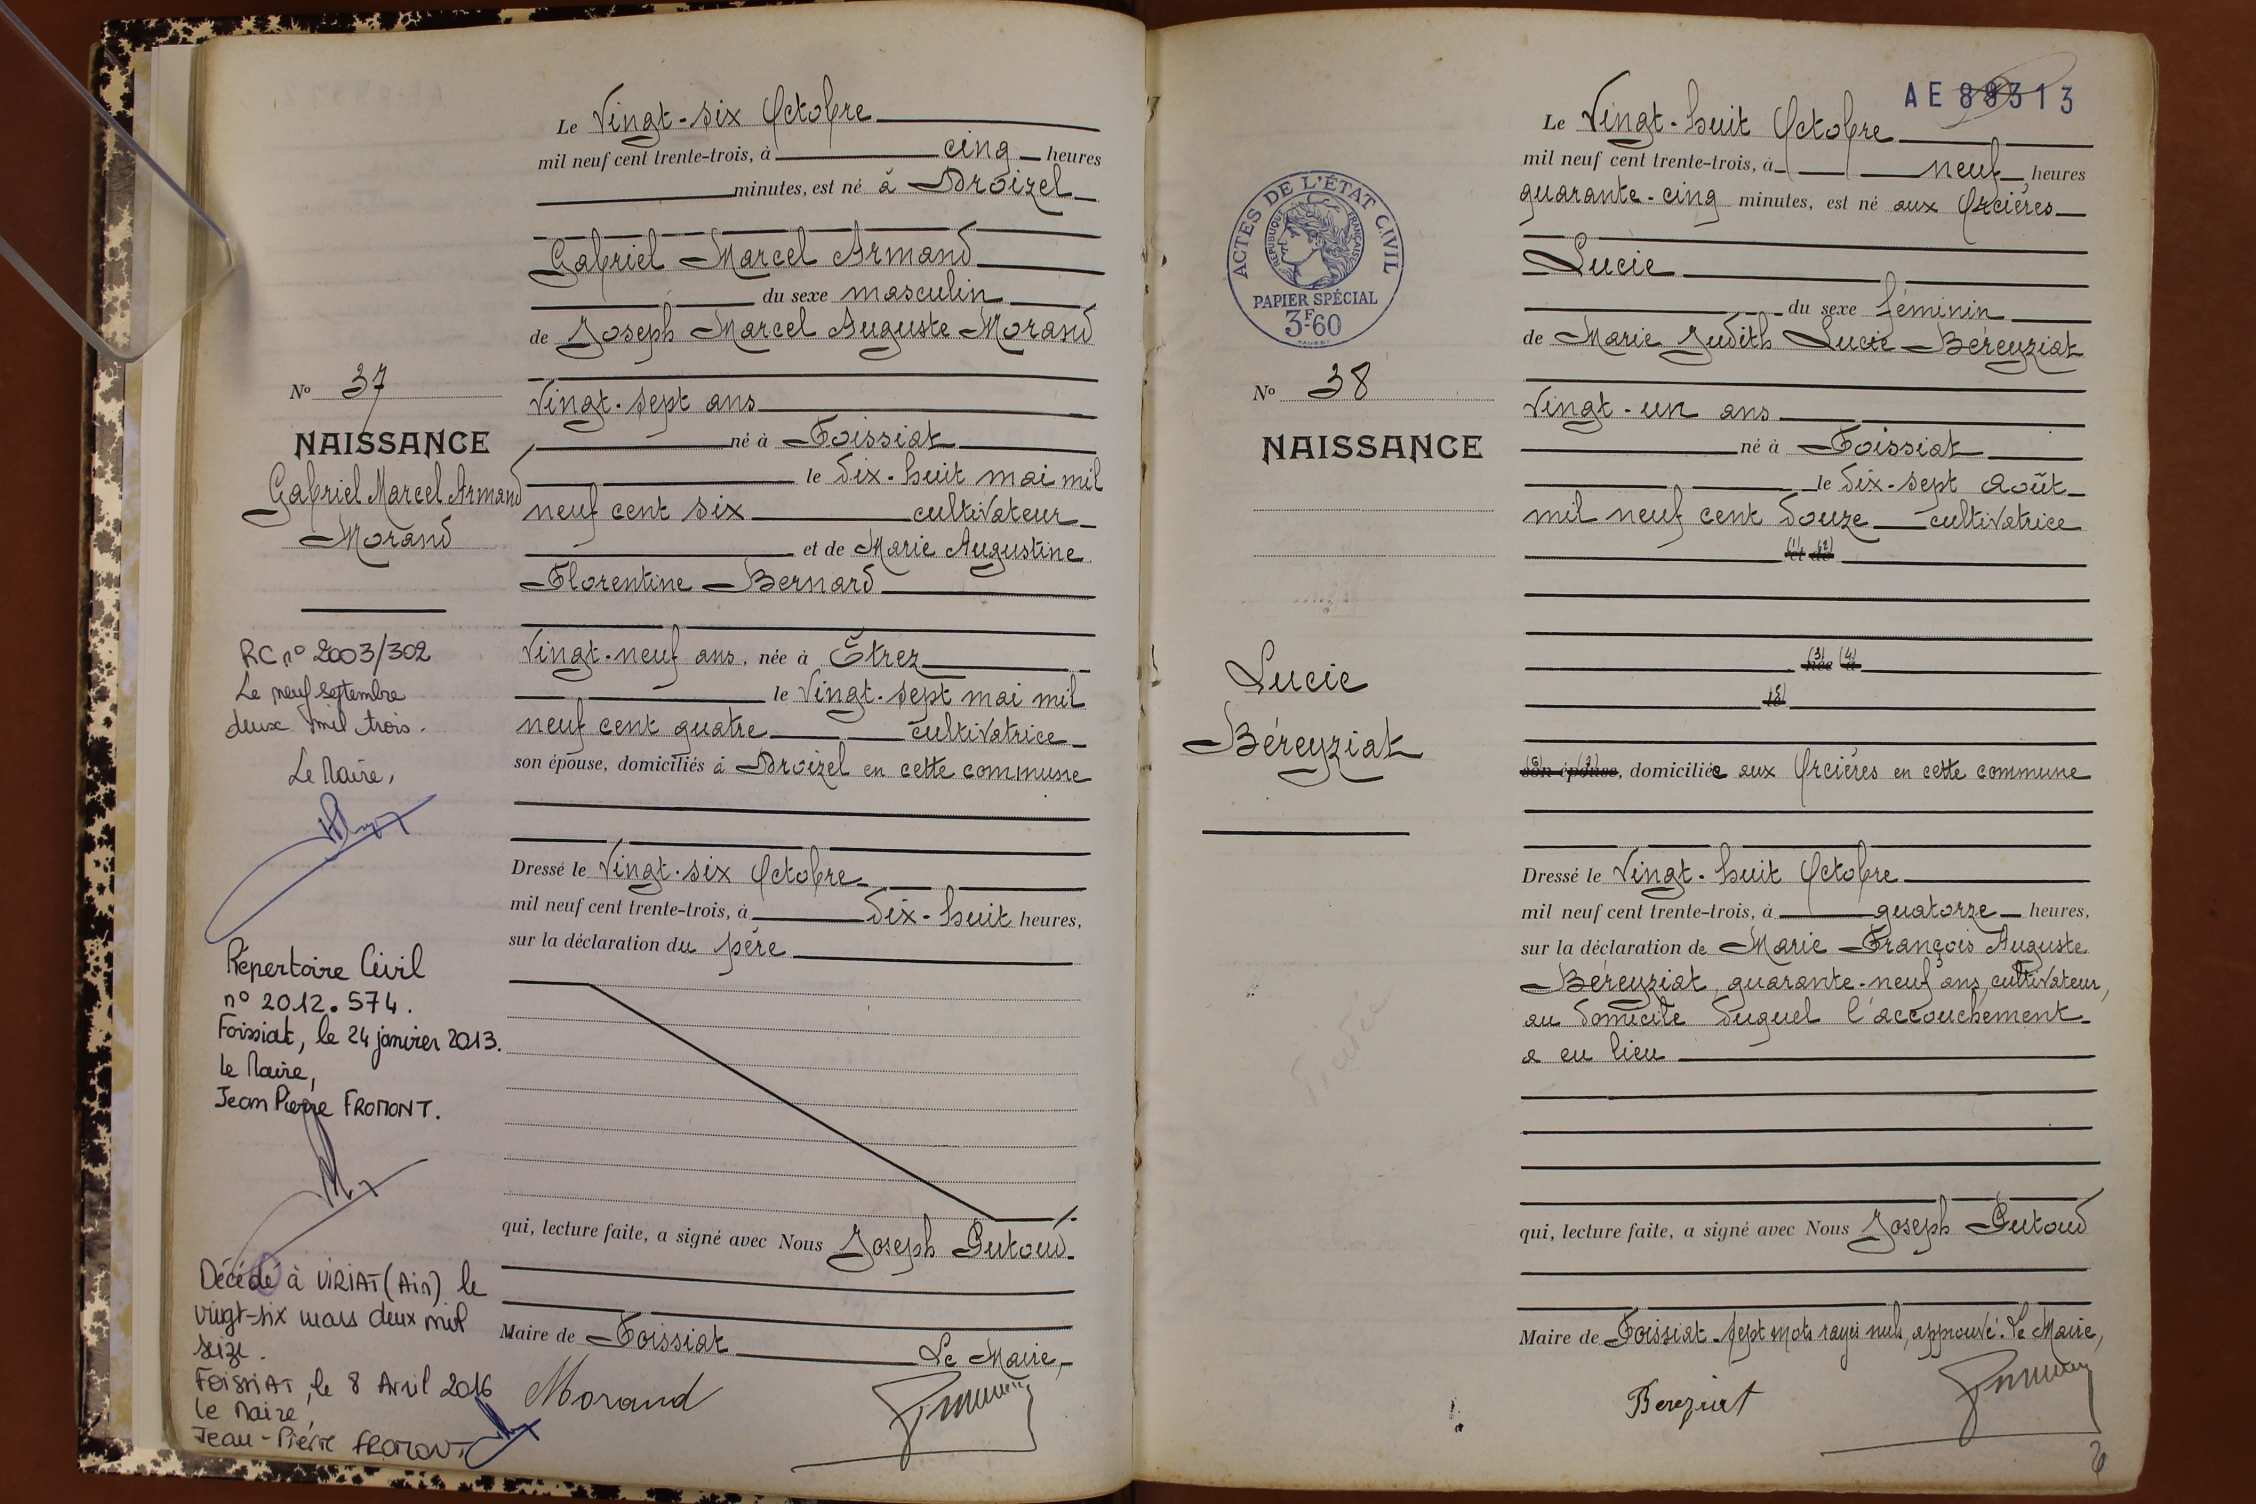 Le Vingt-six Octobre
mil neuf cent trente-trois, à cinq heures
minutes, est né à Droizel
Gabriel Marcel Armand
du sexe masculin
de Joseph Marcel Auguste Morand
Vingt-sept ans
né à Foissiat
le dix-huit mai mil
neuf cent six cultivateur
et de Marie Augustine
Florentine Bernard
Vingt-neuf ans, née à Étrez
le Vingt-sept mai mil
neuf cent quatre cultivatrice
son épouse, domiciliés à Droizel en cette commune
Dressé le Vingt-six Octobre
mil neuf cent trente-trois, à dix-huit heures,
sur la déclaration du père
qui, lecture faite, a signé avec Nous Joseph Putoud
Maire de Foissiat Le Maire,
Morand
No 37
NAISSANCE
Gabriel Marcel Armand
Morand
RC no 2003/302
Le neuf septembre
deux mil trois.
Le Maire,
Répertoire Civil
no 2012.574.
Foissiat, le 24 janvier 2013.
Le Maire,
Jean Pierre FROMONT.
Décédé à VIRIAT (Ain) le
vingt-six mars deux mil
seize.
FOISSIAT, le 8 Avril 2016
Le Maire,
Jean-Pierre FROMONT
AE 88313
Le Vingt-huit Octobre
mil neuf cent trente-trois, à neuf heures
quarante-cinq minutes, est né aux Orcières
Lucie
du sexe féminin
de Marie Judith Lucie Béreyziat
Vingt-un ans
né à Foissiat
le dix-sept Août
mil neuf cent douze cultivatrice
(1) (2)
et de
(3) (4)
née à
(5)
le
(6) (7)
son épouse, domiciliée aux Orcières en cette commune
Dressé le Vingt-huit Octobre
mil neuf cent trente-trois, à quatorze heures,
sur la déclaration de Marie François Auguste
Béreyziat, quarante-neuf ans, cultivateur,
au domicile duquel l'accouchement
a eu lieu
qui, lecture faite, a signé avec Nous Joseph Putoud
Maire de Foissiat. sept mots rayés nuls, approuvé. Le Maire,
Bereziat
ACTES DE L'ÉTAT CIVIL
RÉPUBLIQUE FRANÇAISE
PAPIER SPÉCIAL
3F60
No 38
NAISSANCE
Lucie
Béreyziat